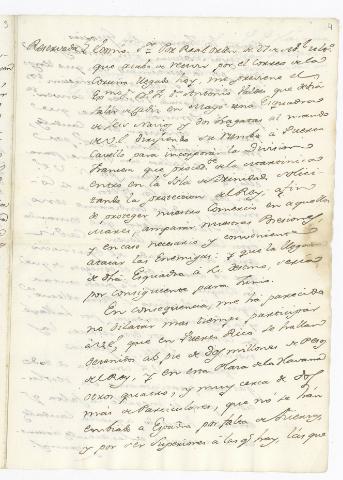 4
Reservada Exmo. Sor. Por Real orden de 27 de
que acabo de recivir por el Correo de la
Coruña llegado hoy, me previene el
Exmo. Sor. Dn. Antonio Valdes que debía
salir de Cadiz en mayo una Esquadra
de seis Navios y dos fragatas al mando
de V.E. dirigiendo su rumbo a Puerto
Cavello para incorporar la Division
francesa que proced.te de la Martinica
entró en la Isla de Trinidad solici
tando la proteccion del Rey, a fin
de proteger nuestro Comercio en aquellos
Mares, amparar nuestras Posesiones
y en caso necesario y conveniente
atacar las Enemigas: y que la llegada
de dha Esquadra à su destino, sería
por consiguiente para Junio.
En conseqüencia, me há parecido
no dilatar mas tiempo, participar
à V.E. que en Puerto Rico se hallan
detenidos al pie de dos millones de Pesos
del Rey, y en esta Plaza de la Havana
otros quatro, y muy cerca de dos
mas de Particulares, que no se han
embiado a España por falta de Buques
y por ser Superiores à las qe. hay, las que